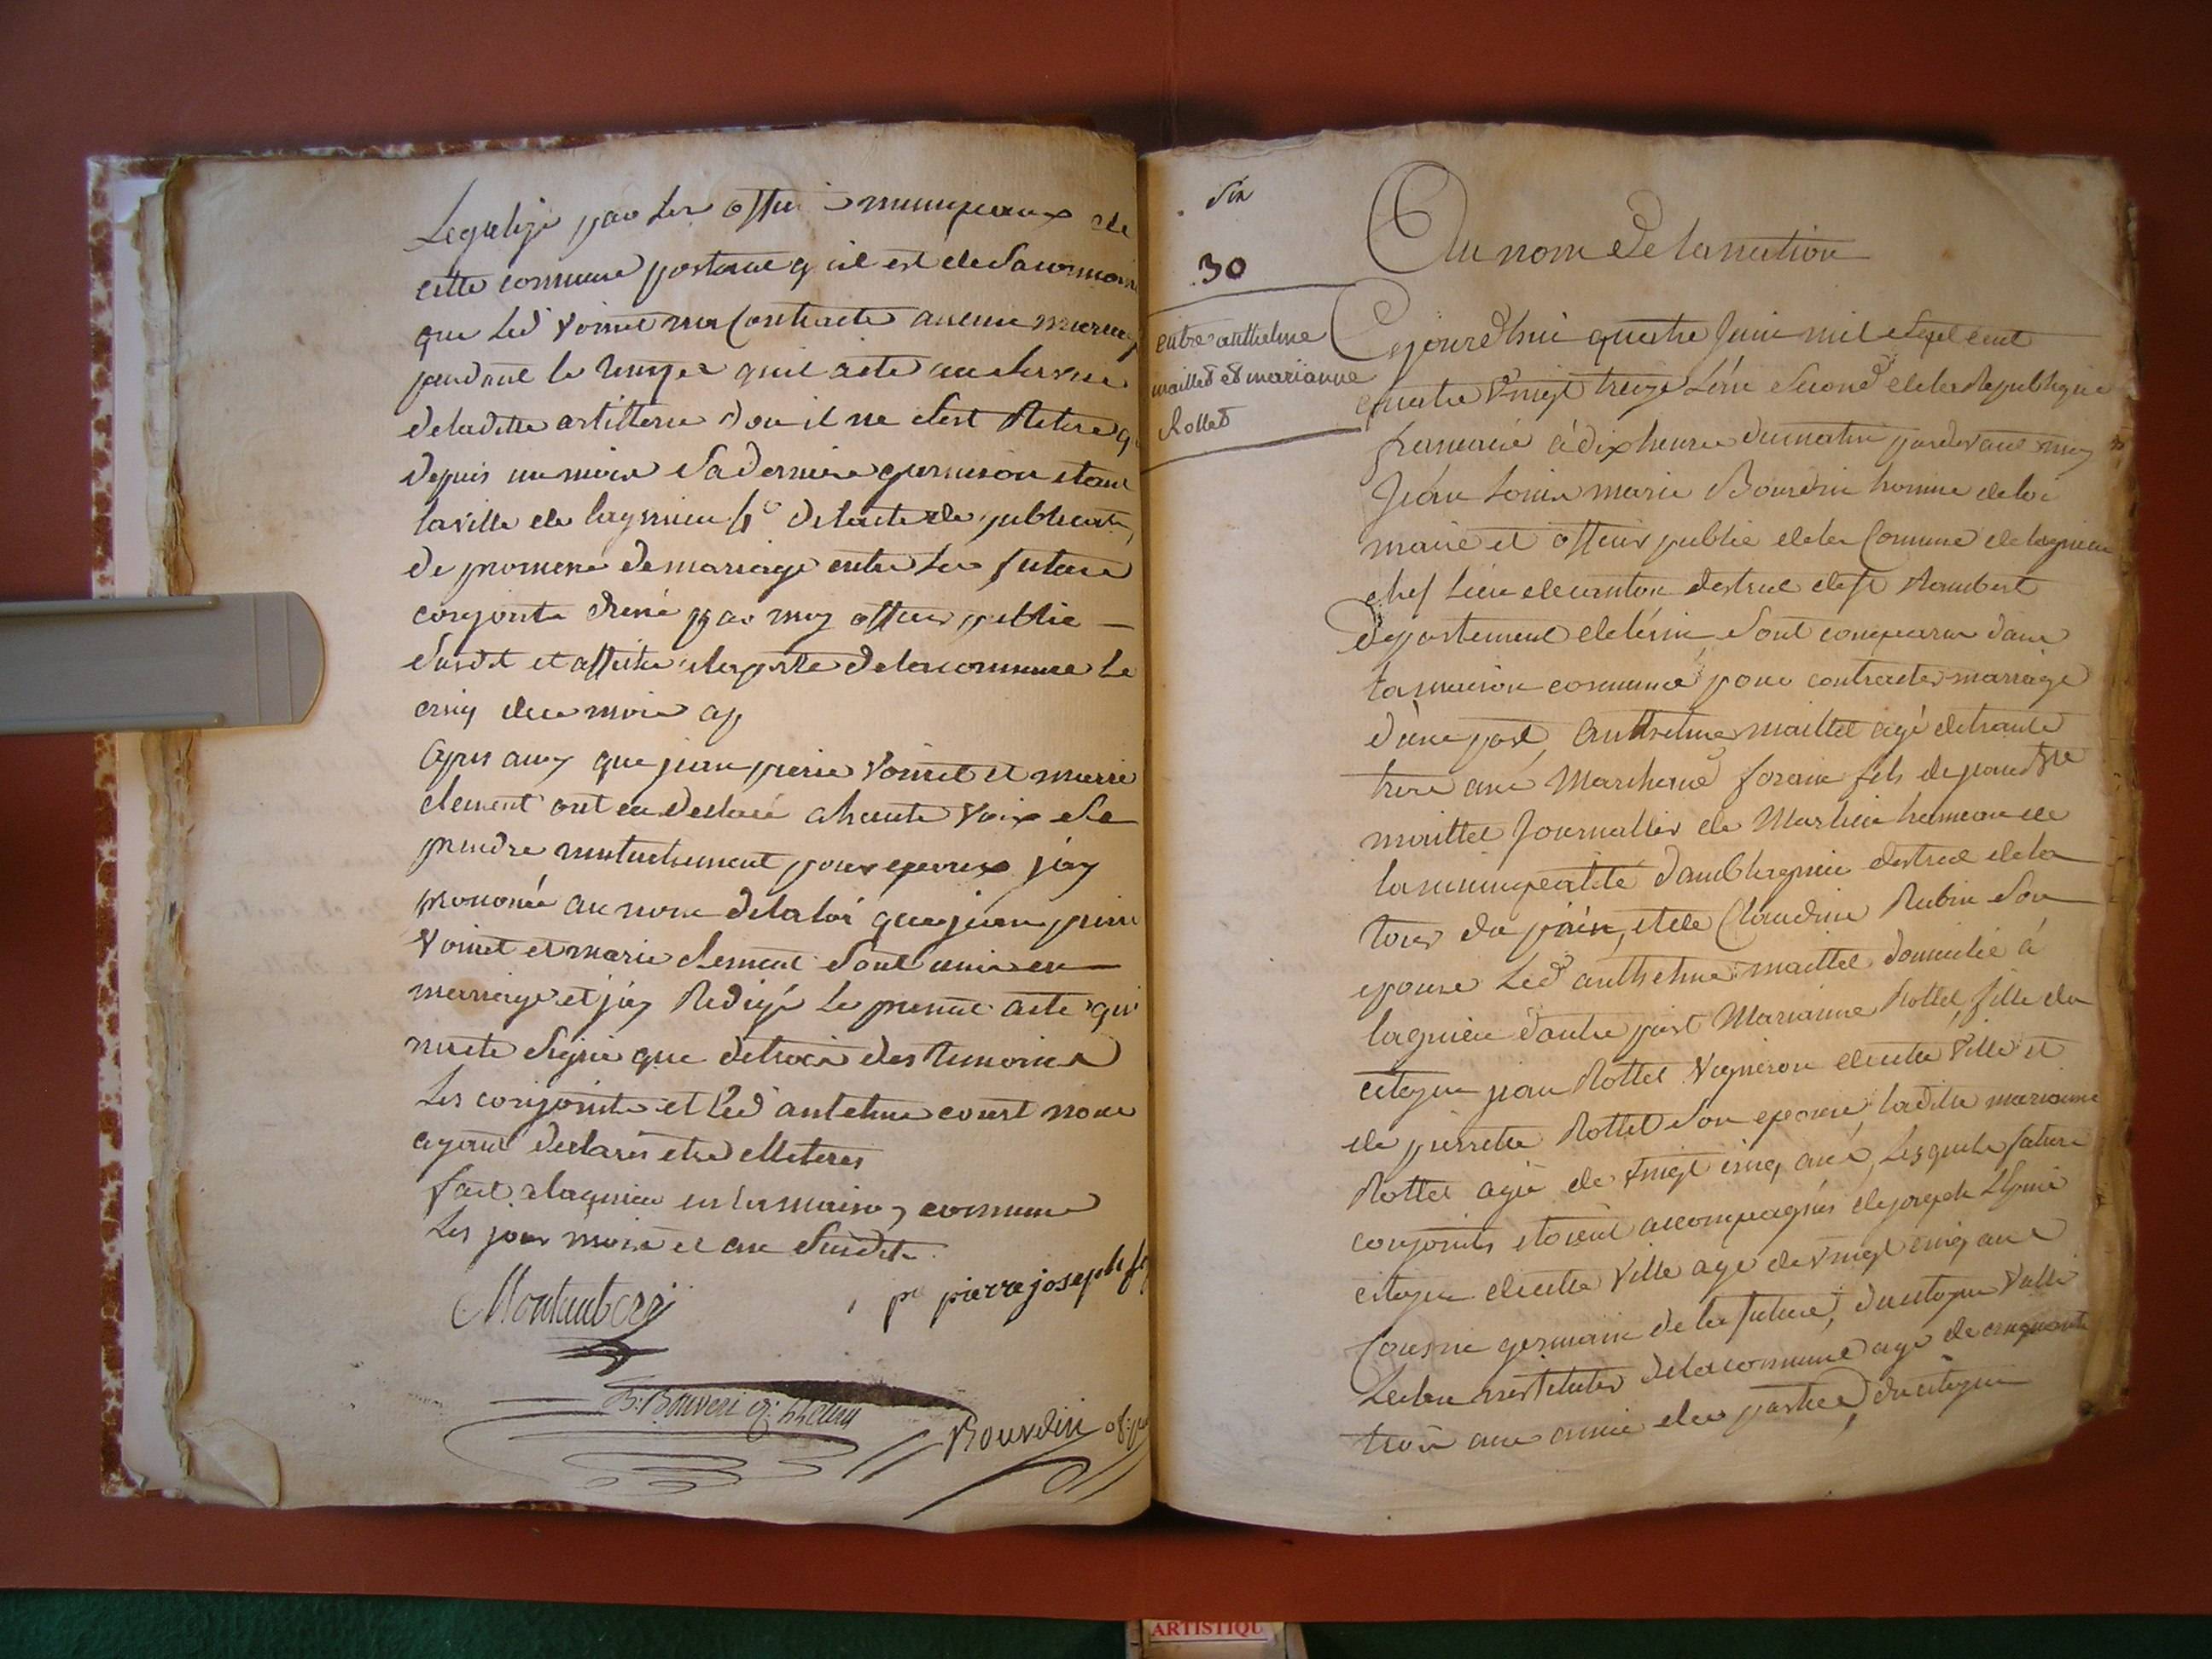 Legalisé par les offici municipaux de
cette commune portant qu'il est de sa connoi
que led voinet n'a contracté aucun mariag
pendant le temps qu'il a eté au service
de laditte artillerie d'ou il ne s'est retiré q
depuis un mois sa derniere garnison etant
la ville de 4° de l'acte de publicati
de promesse de mariage entre les futurs
conjoints dressé par moy officier public
susdit et affiché a la porte de la commune le
cinq de ce mois
apres aussy que jean pierre voinet et marie
clement ont eu declaré a haute voix se
prendre mutuellement pour epoux j'ay
prononcé au nom de la loi que jean pierre
voinet et marie clement sont unis en
mariage et j'ay redigé le present acte qui
n'a eté signé que de trois des temoins
les conjoints et led antelme court nous
ayant declarés etre illeteres
fait a lagnieu en la maison commune
les jour mois et an susdits
Montaubery
pr pierre joseph
B. Bouveri
Bourdin of: pu
six
30
entre anthelme
maillet et marianne
Rollet
Au nom de la nation
Cejourd'hui quatre juin mil sept cent
quatre vingt treize l'an second de la Republique
francaise à dix heures du matin pardevant moy
Jean Louis marie Bourdin homme de loi
maire et officier public de la Comune de lagnieu
chef lieu de canton destrict de st Rambert
departement de l'ain sont comparus dans
la maison commune pour contracter mariage
d'une part anthelme maillet agé de trante
trois ans Marchand forain fils de
maillet Journallier de hameau de
la municipalité d'amblagnieu destrict de la
tour du pain, et de Claudine Rubin son
epouse led anthelme maillet domicilié à
lagnieu d'autre part Marianne Rollet fille du
citoyen jean Rollet vigneron de cette ville et
de pierrette Rollet son epouse, laditte marianne
Rollet agée de vingt cinq ans, lesquels futurs
conjoints etoient accompagnés de joseph
citoyen de cette ville agé de vingt cinq ans
Cousin germain de la future, du citoyen
instituteur de la commune agé de cinquante
trois ans amie des parties, du citoyen
ARTISTIQU